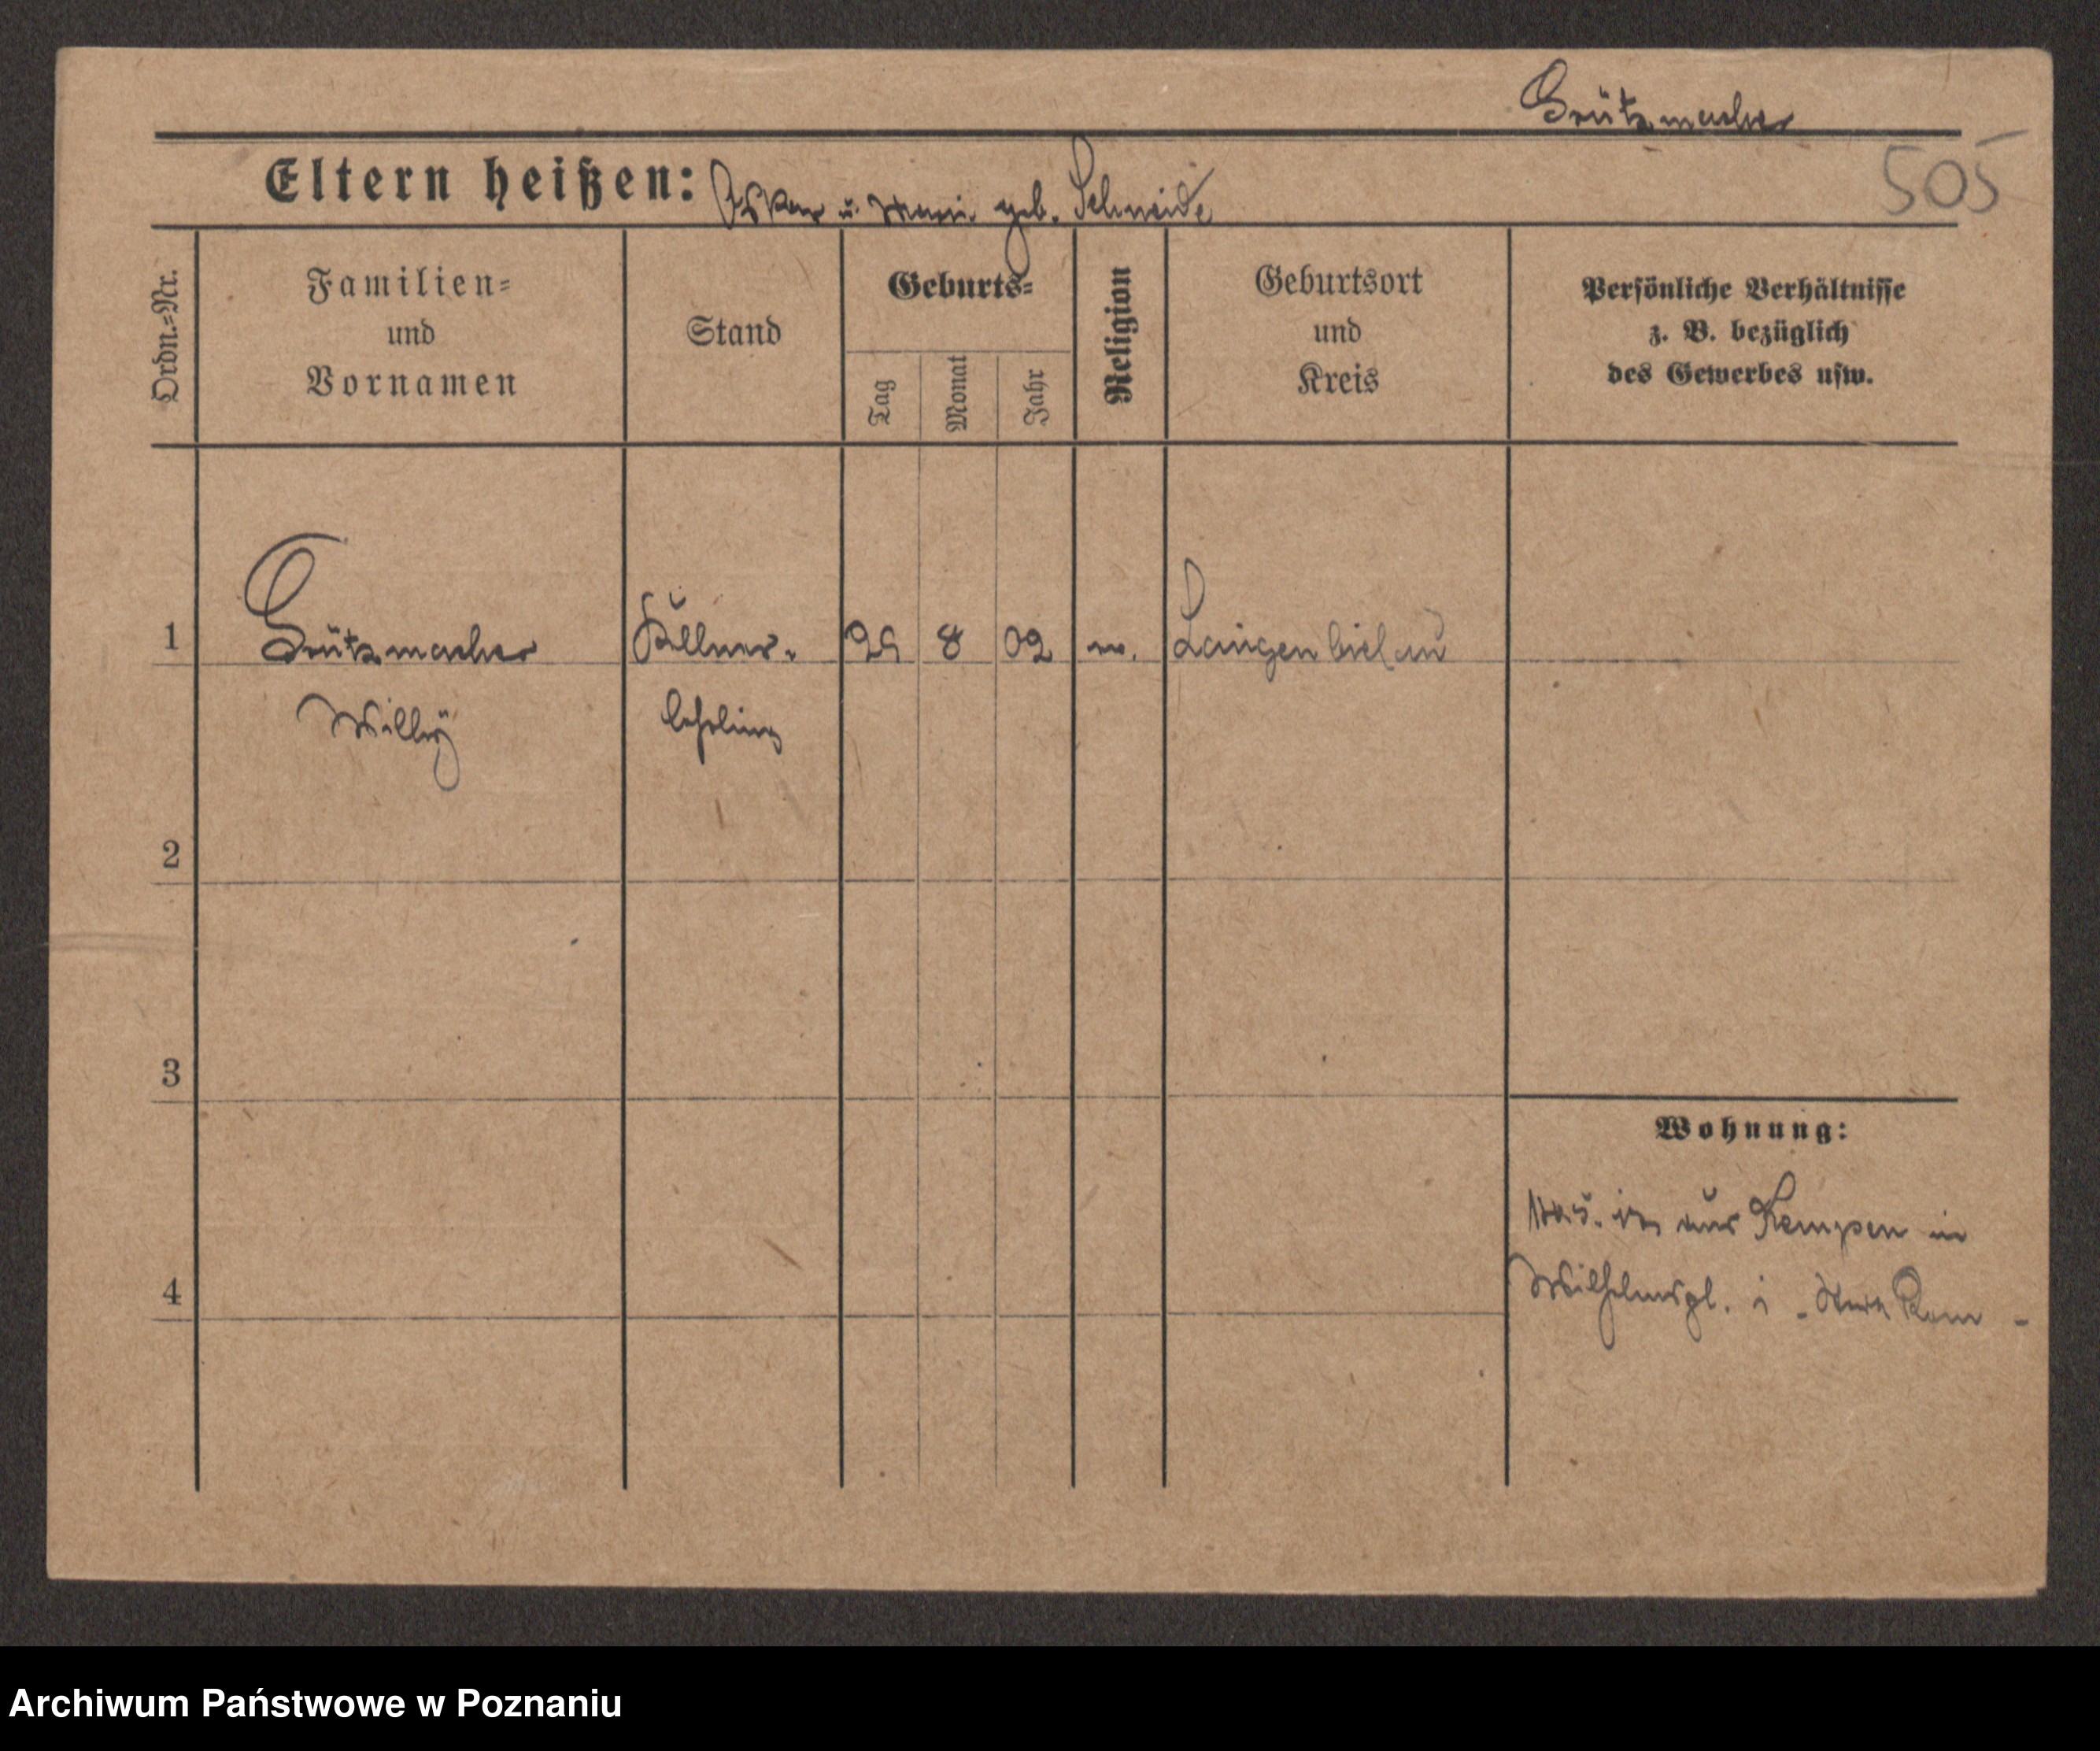 Grützmacher
505
Eltern heißen: Oskar u. Marie geb. Schneide
Ordn.=Nr.
Familien=
und
Vornamen
Stand
Geburts=
Tag
Monat
Jahr
Religion
Geburtsort
und
Kreis
Persönliche Verhältnisse
z. B. bezüglich
des Gewerbes usw.
1 Grützmacher Kellner- 29 8 02 Langenbielau
Willy lehrling
2
3
Wohnung:
aus Kempen in
4
Wilhelmspl.
Archiwum Państwowe w Poznaniu